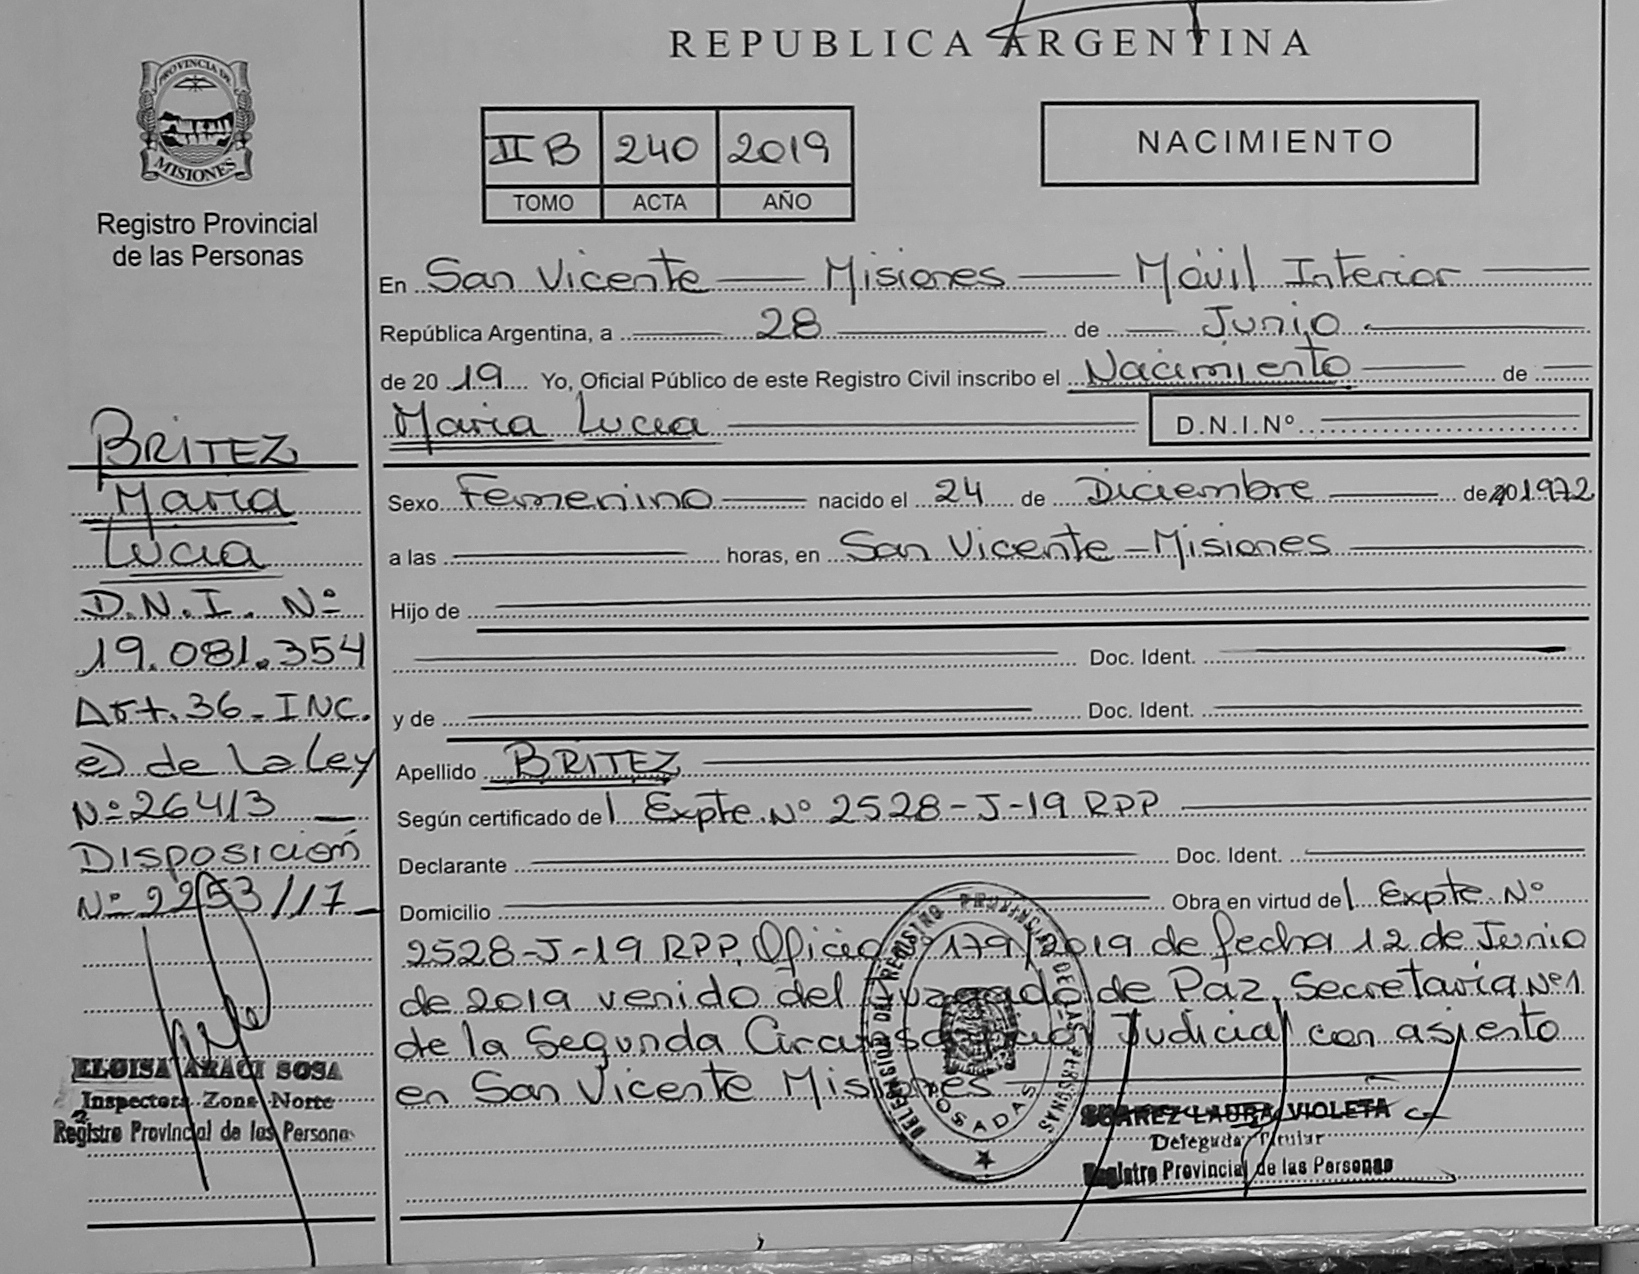 REPUBLICA ARGENTINA
PROVINCIA DE
MISIONES
Registro Provincial
de las Personas
II B 240 2019
TOMO ACTA AÑO
NACIMIENTO
En San Vicente Misiones Móvil Interior
República Argentina, a 28 de Junio
de 2019 Yo, Oficial Público de este Registro Civil inscribo el Nacimiento de
Maria Lucia D.N.I.Nº
Sexo Femenino nacido el 24 de Diciembre de 1.972
a las horas, en San Vicente - Misiones
Hijo de
Doc. Ident.
y de Doc. Ident.
Apellido BRITEZ
Según certificado del Expte. Nº 2528-J-19 RPP
Declarante Doc. Ident.
Domicilio Obra en virtud del Expte. Nº
2528-J-19 RPP, Oficio 179/2019 de fecha 12 de Junio
de 2019 venido del Juzgado de Paz, Secretaria Nº1
de la Segunda Circunscripción Judicial con asiento
en San Vicente Misiones
BRITEZ
Maria
Lucia
D.N.I. Nº
19.081.354
Art. 36 - INC.
e) de la Ley
Nº 26413
DISPOSICIÓN
Nº 2253/17
ELOISA ARACI SOSA
Inspectora Zona Norte
Registro Provincial de las Personas
REGISTRO PROVINCIAL DE LAS PERSONAS
POSADAS
SUAREZ LAURA VIOLETA
Delegada Titular
Registro Provincial de las Personas